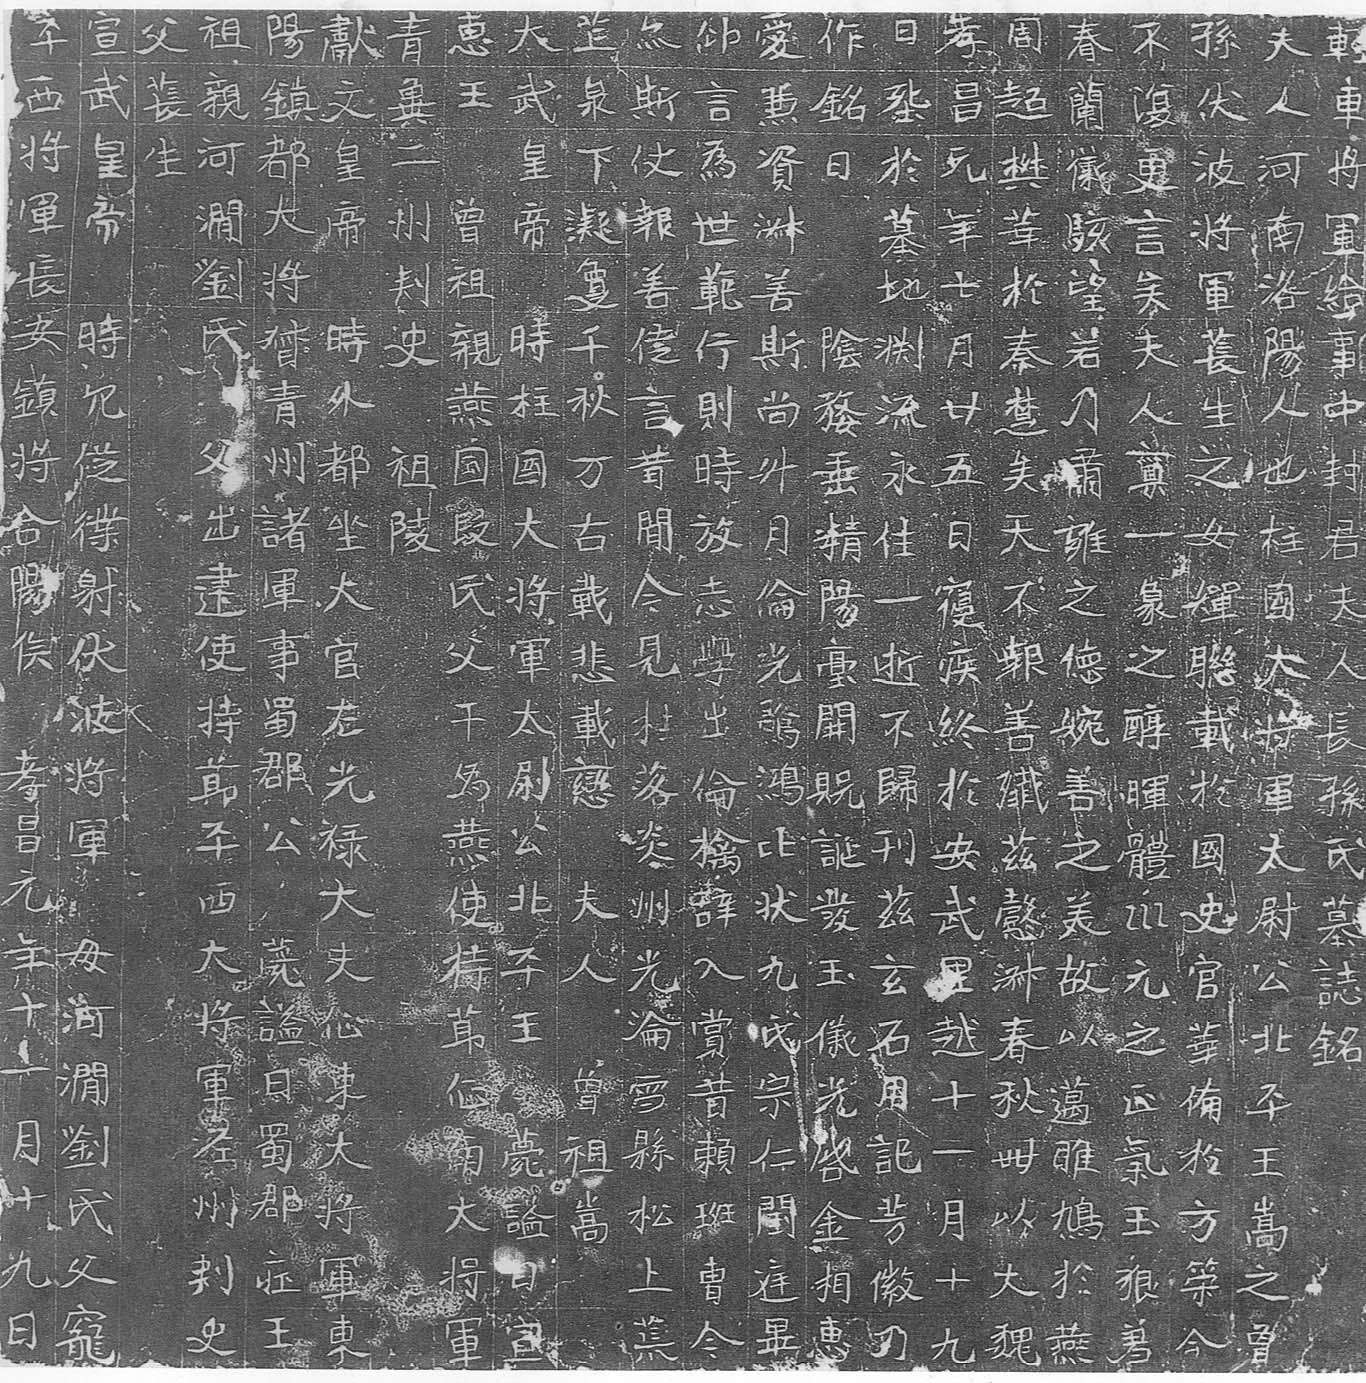 輕車將軍給事中封君夫人長孫氏墓誌銘
夫人河南洛陽人也柱國大將軍太尉公北平王嵩之曾
孫伏波將軍萇生之女輝聯載於國史官華備於方策今
不復更言矣夫人資一象之醇暉體三元之正氣玉狠著
春蘭儀駭望若乃肅雍之德婉善之美故以邁雎鳩於燕
周超樊華於秦楚矣天不報善殲茲懿淋春秋卌以大魏
孝昌元年七月廿五日寢疾終於安武里越十一月十九
日葬於墓地渕流永住一逝不歸刊茲玄石用記芳徽乃
作銘曰 陰婺垂精陽臺開貺誕發玉儀光啓金相惠
愛兼資淋善斯尚升月倫光驚鴻比狀九氏宗仁閨庭畢
仰言為世範行則時放志學出倫摛辭入賞昔賴班曹今
無斯仗報善徒言昔聞今見桂落炎州光淪雪縣松上蕪
芷泉下凝夐千秋万古載悲載戀 夫人 曾祖嵩
太武皇帝 時柱国大將軍太尉公北平王 薨謚曰宣
惠王 曾祖親燕国段氏父干為燕使持節征南大將軍
青冀二州刺史 祖陵
獻文皇帝 時外都坐大官左光禄大夫征東大將軍東
陽鎮都大將督青州諸軍事蜀郡公 薨謚曰蜀郡莊王
祖親河澗劉氏父出建使持節平西大將軍涇州刺史
父萇生
宣武皇帝 時冗從僕射伏波將軍 母河澗劉氏父寵
平西將軍長安鎮將合陽侯 孝昌元年十一月十九日